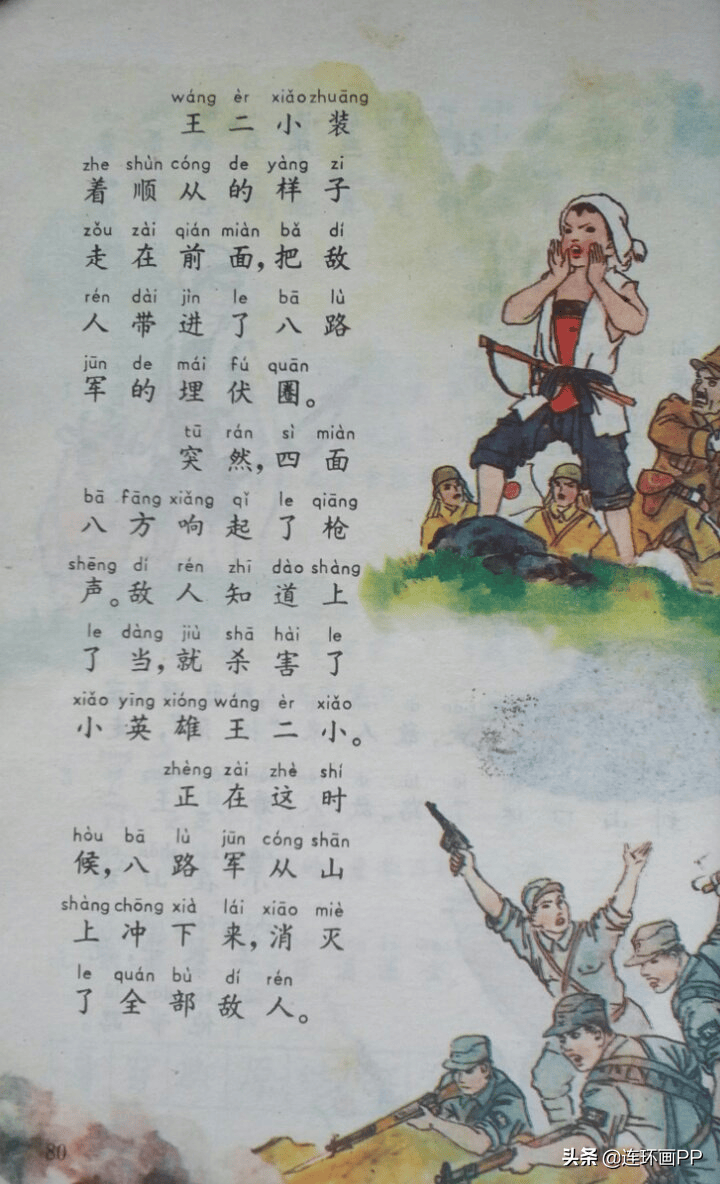 wáng èr xiǎo zhuāng
王二小装
zhe shùn cóng de yàng zi
着顺从的样子
zǒu zài qián miàn bǎ dí
走在前面,把敌
rén dài jìn le bā lù
人带进了八路
jūn de mái fú quān
军的埋伏圈。
tū rán sì miàn
突然,四面
bā fāng xiǎng qǐ le qiāng
八方响起了枪
shēng dí rén zhī dào shàng
声。敌人知道上
le dàng jiù shā hài le
了当,就杀害了
xiǎo yīng xióng wáng èr xiǎo
小英雄王二小。
zhèng zài zhè shí
正在这时
hòu bā lù jūn cóng shān
候,八路军从山
shàng chōng xià lái xiāo miè
上冲下来,消灭
le quán bù dí rén
了全部敌人。
80
头条 @连环画PP